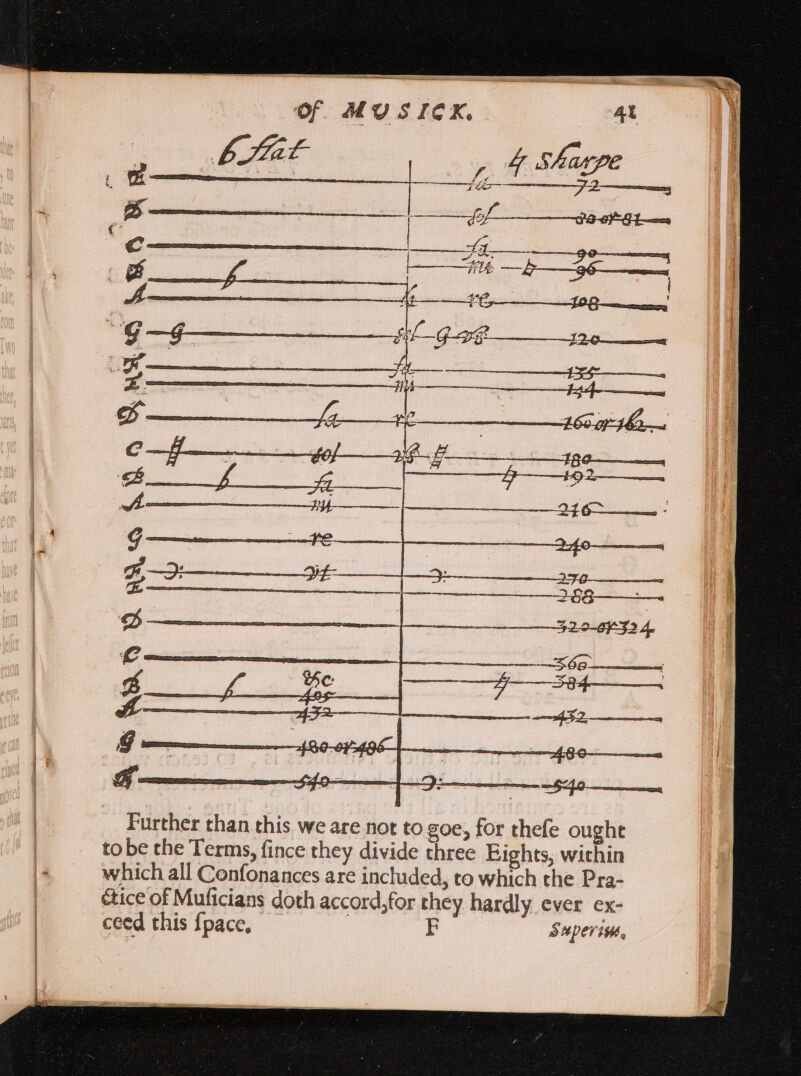 Of MUSICK. 41
b flat ♮ Sharpe
E la 72
D sol 80 or 81
C fa 90
B b mi ♮ 96
A la re 108
G G sol G vt 120
F fa 135
E mi 144
D la re 160 or 162
C sol vt 180
B b fa ♮ 192
A mi 216
G re 240
F vt 270
E 288
D 320 or 324
C 360
B b &c 405 ♮ 384
A 432 432
G 480 or 486 480
F 540 540
Further than this we are not to goe, for theſe ought
to be the Terms, ſince they divide three Eights, within
which all Conſonances are included, to which the Pra-
ctice of Muſicians doth accord, for they hardly ever ex-
ceed this ſpace. F Superius,